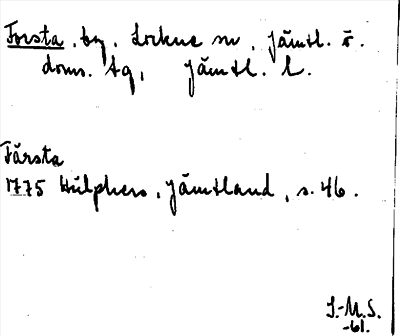 Forsta, by, Lockne sn, Jämtl. ö.
doms. tg, Jämtl. l.
Fårsta
1775 Hülphers, Jämtland, s. 46.
I.-M.S.
-61.